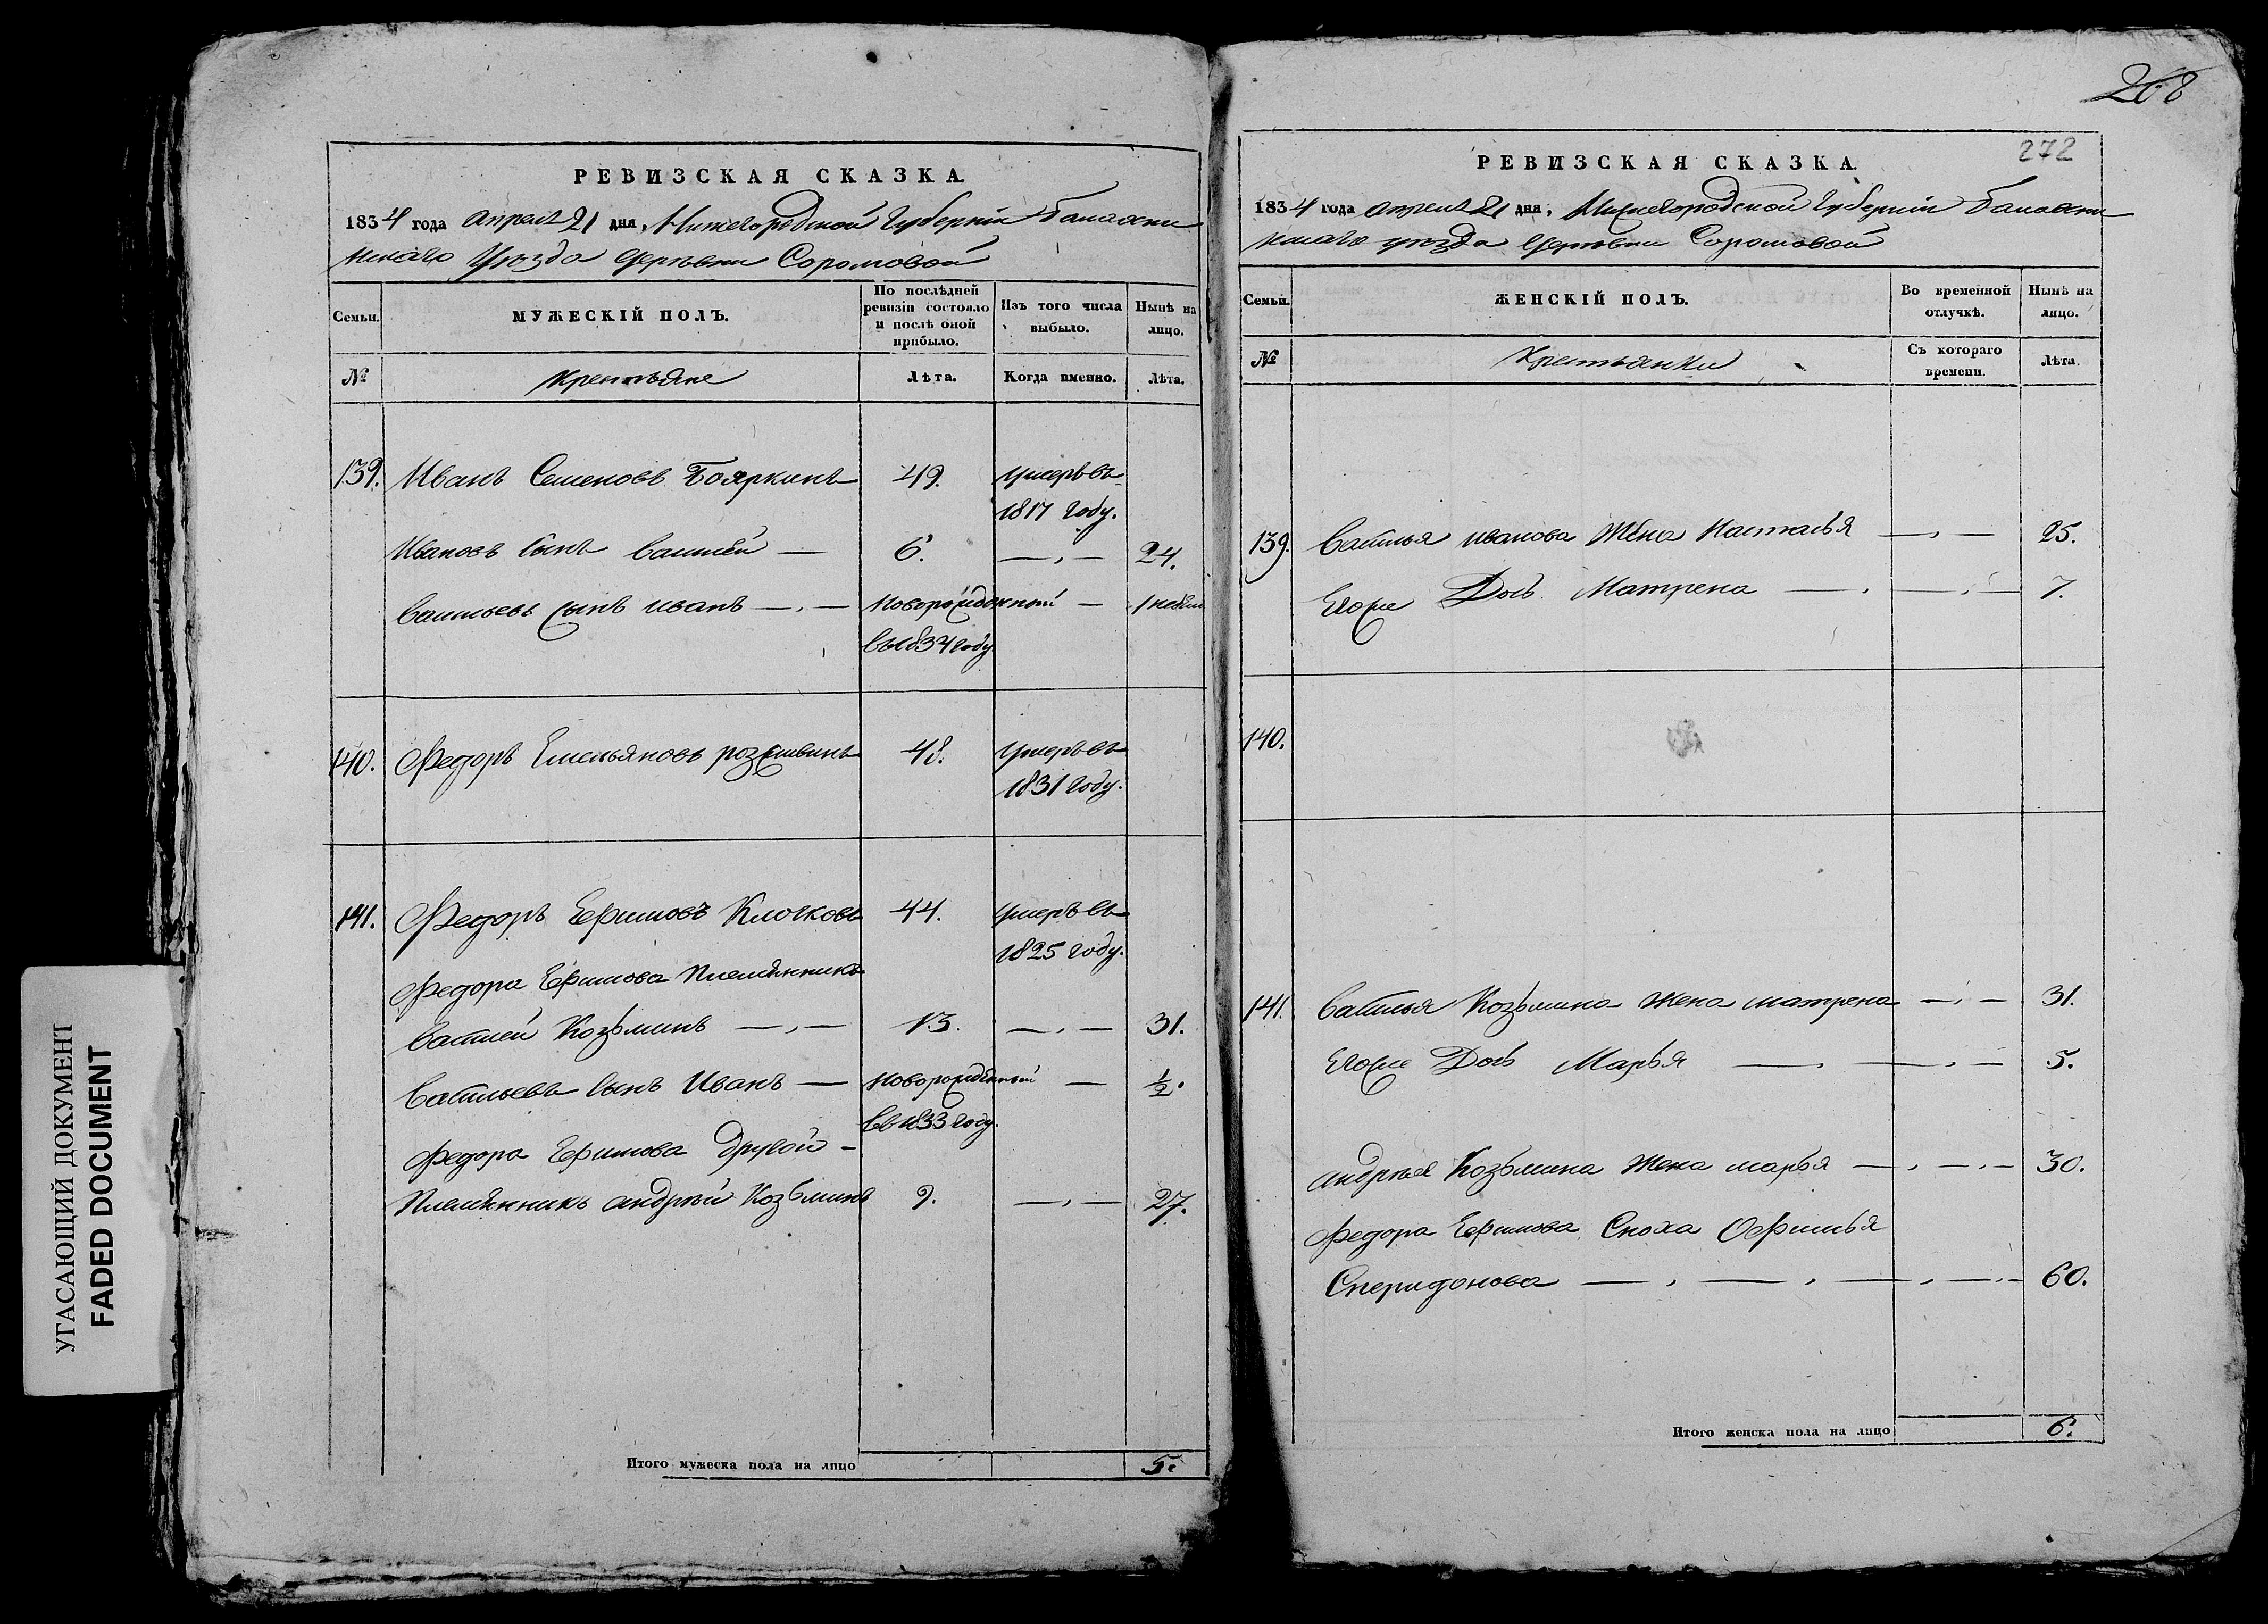 268
272
РЕВИЗСКАЯ СКАЗКА.
1834 года апреля 21 дня, Нижегородской Губерніи Балахни
нскаго Уѣзда Деревни Сормовой
Семьи. МУЖЕСКІЙ ПОЛЪ. По послѣдней ревизіи состояло и послѣ оной прибыло. Изъ того числа выбыло. Нынѣ на лицо.
№ Крестьяне Лѣта. Когда именно. Лѣта.
139. Иванъ Семеновъ Бояркинъ 49. умеръ въ
1817 году.
Ивановъ сынъ Василей — 6. — „ — 24.
Васильевъ сынъ иванъ — „ — новорожденный — 1 недѣли
въ 1834 году
140. Федоръ Емельяновъ 48. умеръ въ
1831 году.
141. Федоръ Ефимовъ Клочковъ 44. умеръ въ
1825 году.
Федора Ефимова племянникъ
Василей Козьминъ — „ — 13. — „ — 31.
Васильевъ сынъ Иванъ — новорожденный — ½.
въ 1833 году.
Федора Ефимова другой —
племянникъ андрѣй Козьминъ 9. — „ — 27.
Итого мужеска пола на лицо 5.
РЕВИЗСКАЯ СКАЗКА.
1834 года апреля 21 дня, Нижегородской Губерніи Балахни
нскаго уѣзда Деревни Сормовой
Семьи. ЖЕНСКІЙ ПОЛЪ. Во временной отлучкѣ. Нынѣ на лицо.
№ Крестьянки Съ котораго времени. Лѣта.
139. Василья иванова жена Насталья — „ — 25.
Егоже Дочь Матрена — „ — „ — 7.
140.
141. Василья Козьмина жена матрена — „ — 31.
Егоже Дочь Марья — „ — „ — 5.
андрѣя Козьмина жена марья — „ — „ — 30.
Федора Ефимова Сноха Офимья
Сперидонова — „ — „ — „ — „ — 60.
Итого женска пола на лицо 6.
УГАСАЮЩИЙ ДОКУМЕНТ
FADED DOCUMENT